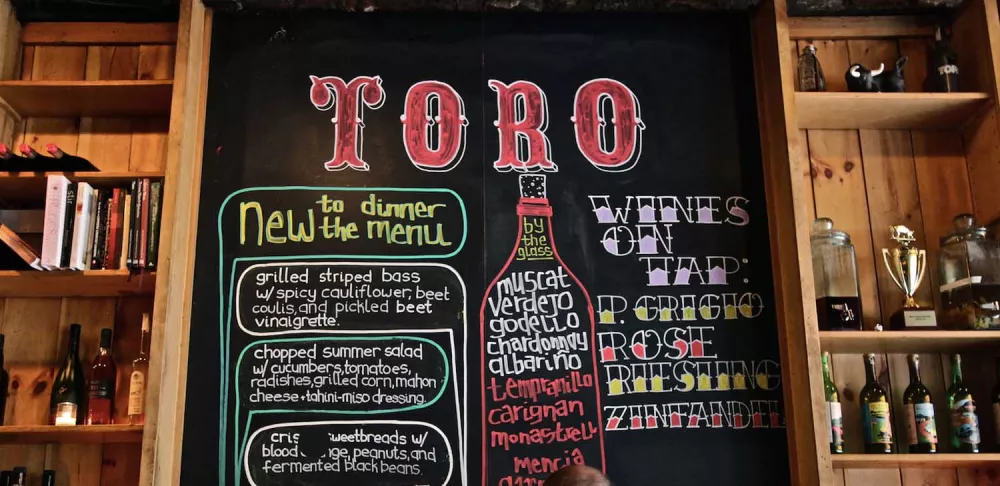 TORO
new to dinner
the menu
grilled striped bass
w/ spicy cauliflower, beet
coulis, and pickled beet
vinaigrette.
chopped summer salad
w/ cucumbers, tomatoes,
radishes, grilled corn, mahon
cheese + tahini-miso dressing.
sweetbreads w/
blood peanuts, and
fermented black beans.
by
the
glass
muscat
verdejo
godello
chardonnay
albariño
tempranillo
carignan
monastrell
mencia
WINES
ON
TAP:
P. GRIGIO
ROSE
RIESLING
ZINFANDEL